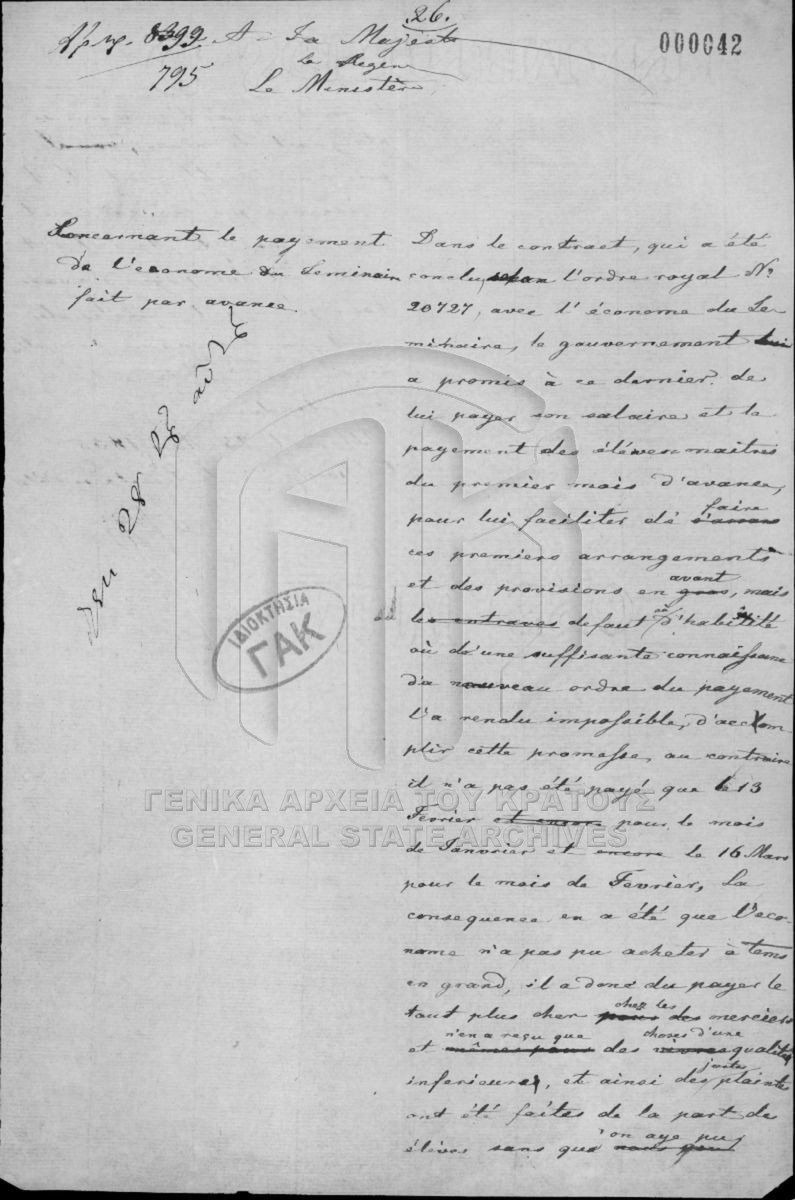 26.
000042
Αριθ. 8399
795
A Sa Majesté
la Regen
Le Ministère
Concernant le payement
de l'econome du Seminair
fait par avance.
ΙΔΙΟΚΤΗΣΙΑ
ΓΑΚ
Dans le contract, qui a été
conclu, selon l'ordre royal No
20727, avec l'économe du Se-
minaire, le gouvernement lui
a promis à ce dernier de
lui payer son salaire et le
payement des élèves maitres
du premier mois d'avance,
pour lui faciliter de faire
ces premiers arrangements
et des provisions en gros avant, mais
les entraves defaut d'habilité
où d'une suffisante connaissance
da nouveau ordre du payement
l'a rendu impossible, d'accom
plir cette promesse, au contraire
il n'a pas été payé que le 13
Fevrier et encore pour le mois
de Janvrier et encore le 16 Mars
pour le mois de Fevrier, La
consequence en a été que l'éco-
nome n'a pas pu acheter à tems
en grand, il a donc du payer le
tout plus cher pour des chez les merciers
et mêmes pour n'en a reçu que des vivres choses d'une qualité
inferieure, et ainsi des justes plaintes
ont été faites de la part des
élèves sans que nous pour l'on aye pu
ΓΕΝΙΚΑ ΑΡΧΕΙΑ ΤΟΥ ΚΡΑΤΟΥΣ
GENERAL STATE ARCHIVES